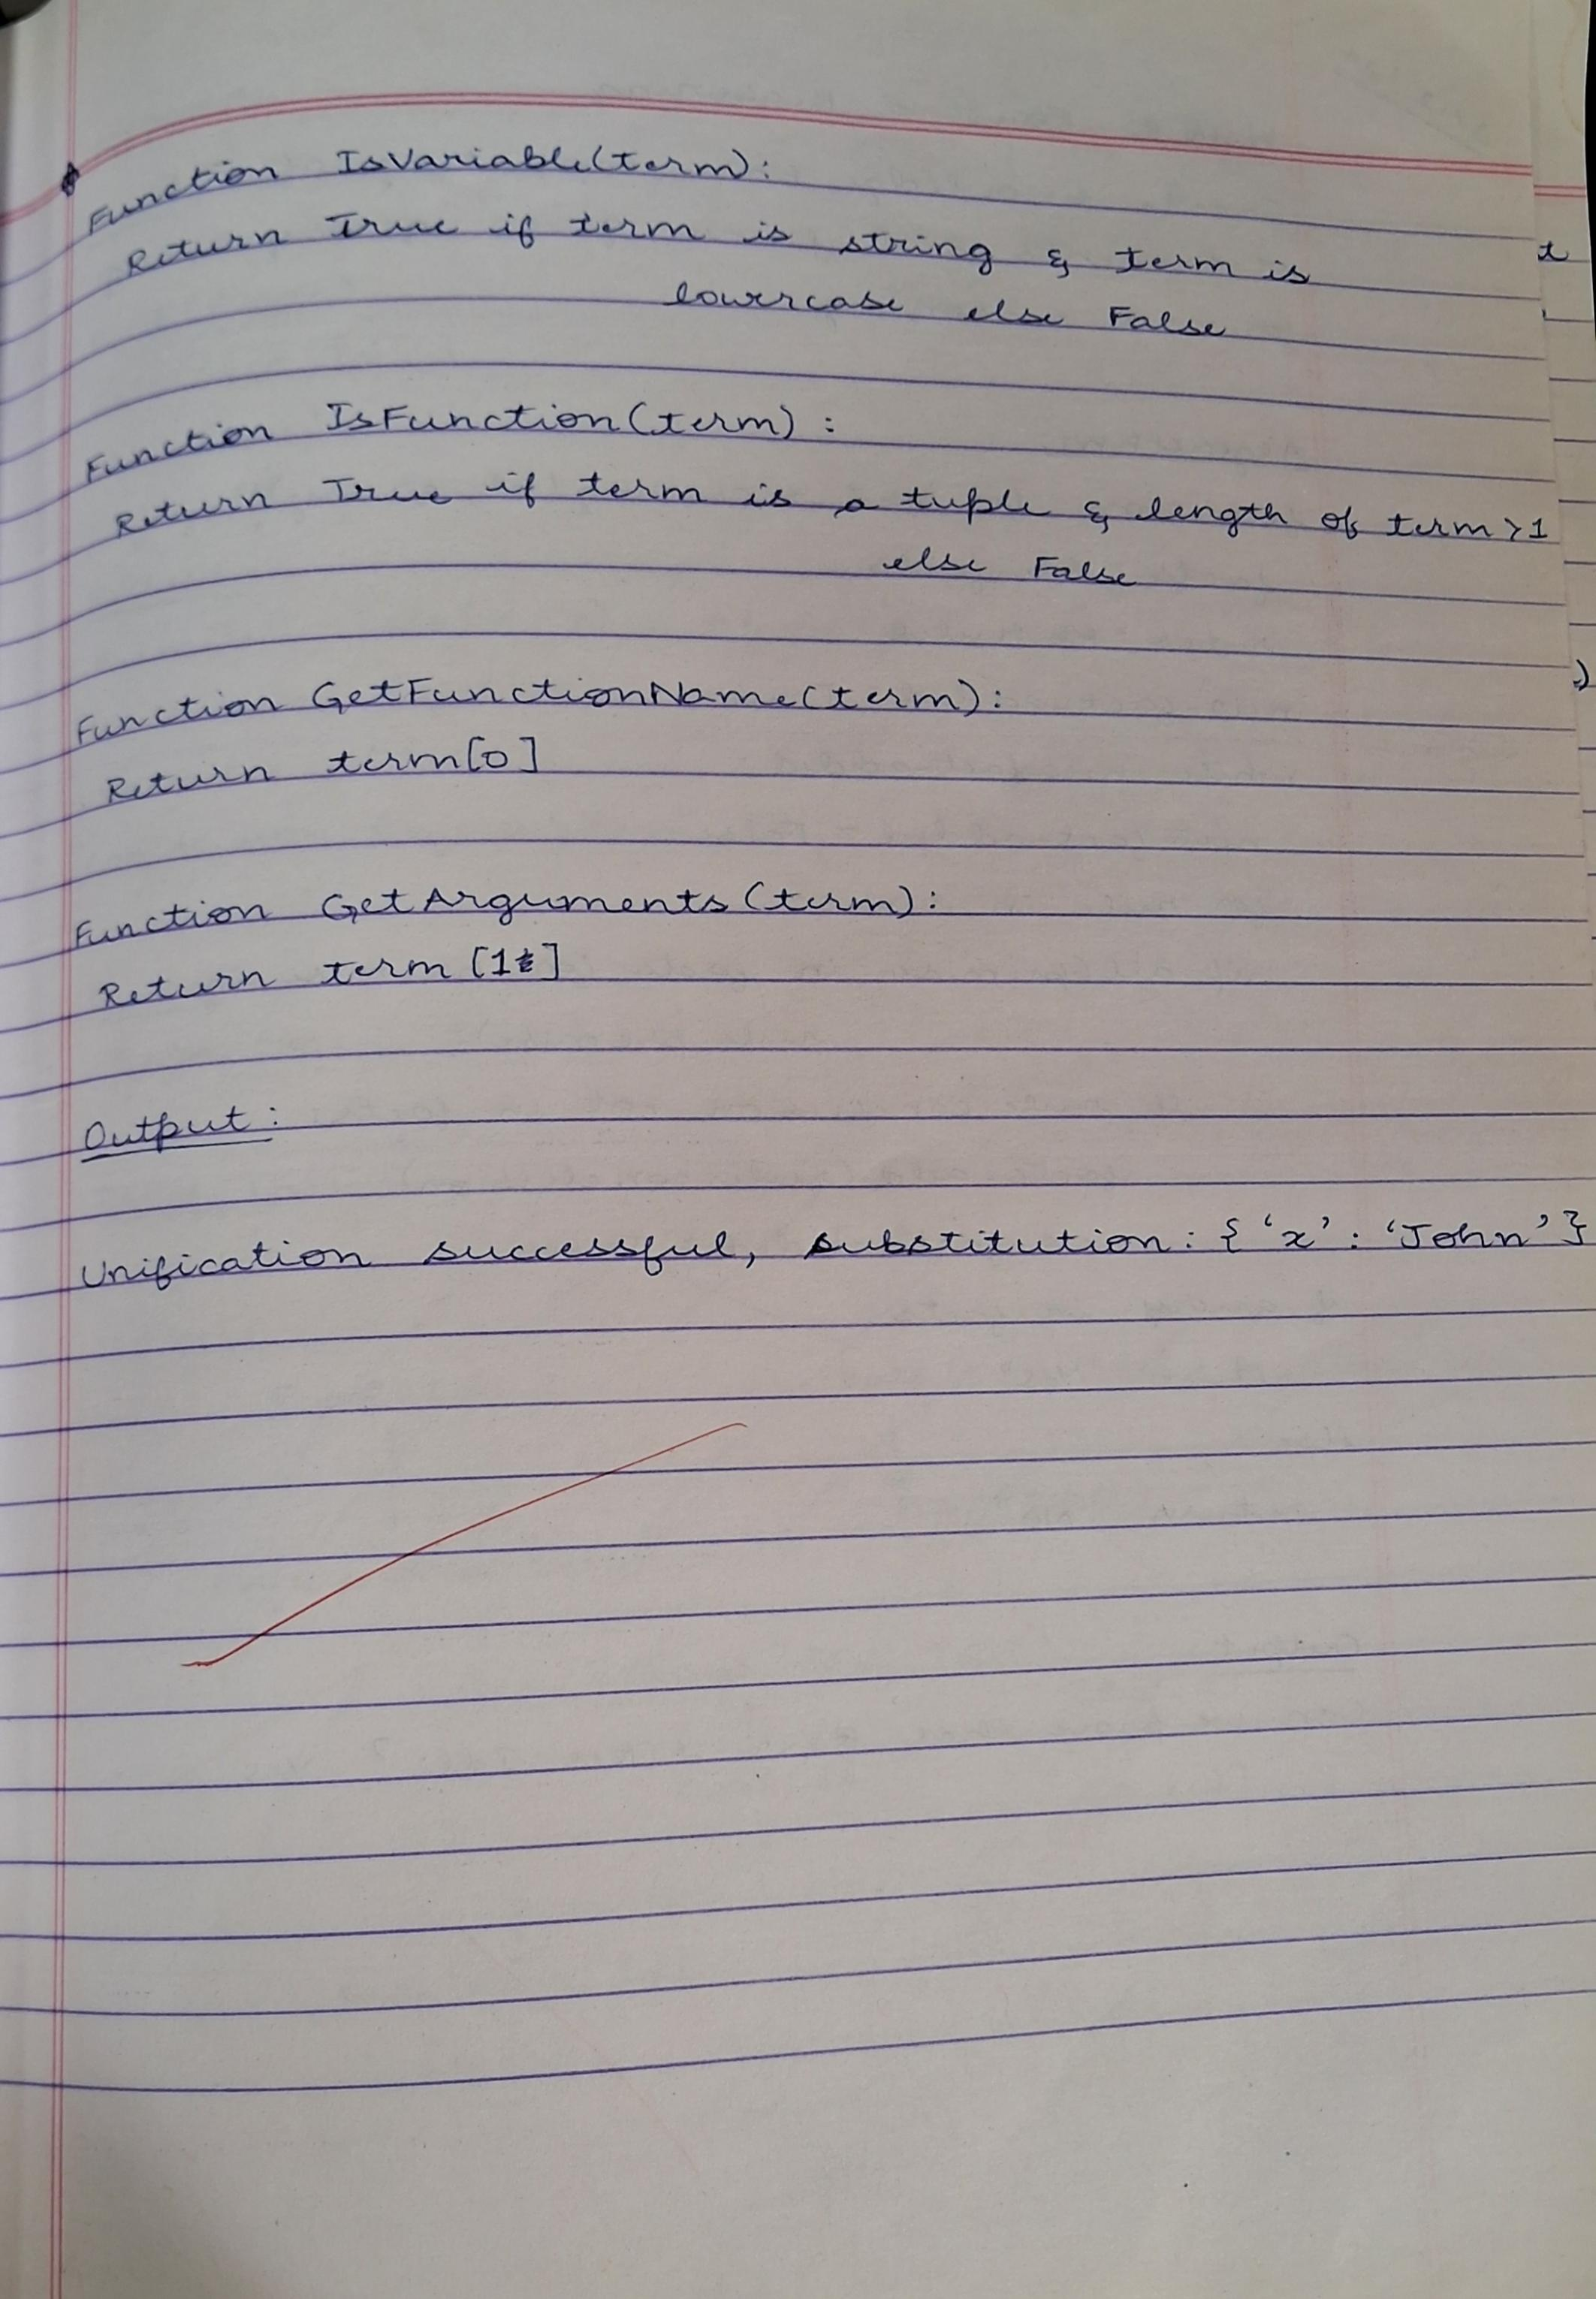 Function IsVariable(term):
Return True if term is string & term is
lowercase else False
Function IsFunction(term):
Return True if term is a tuple & length of term > 1
else False
Function GetFunctionName(term):
Return term[0]
Function GetArguments(term):
Return term[1:]
Output:
Unification successful, substitution: {'x': 'John'}